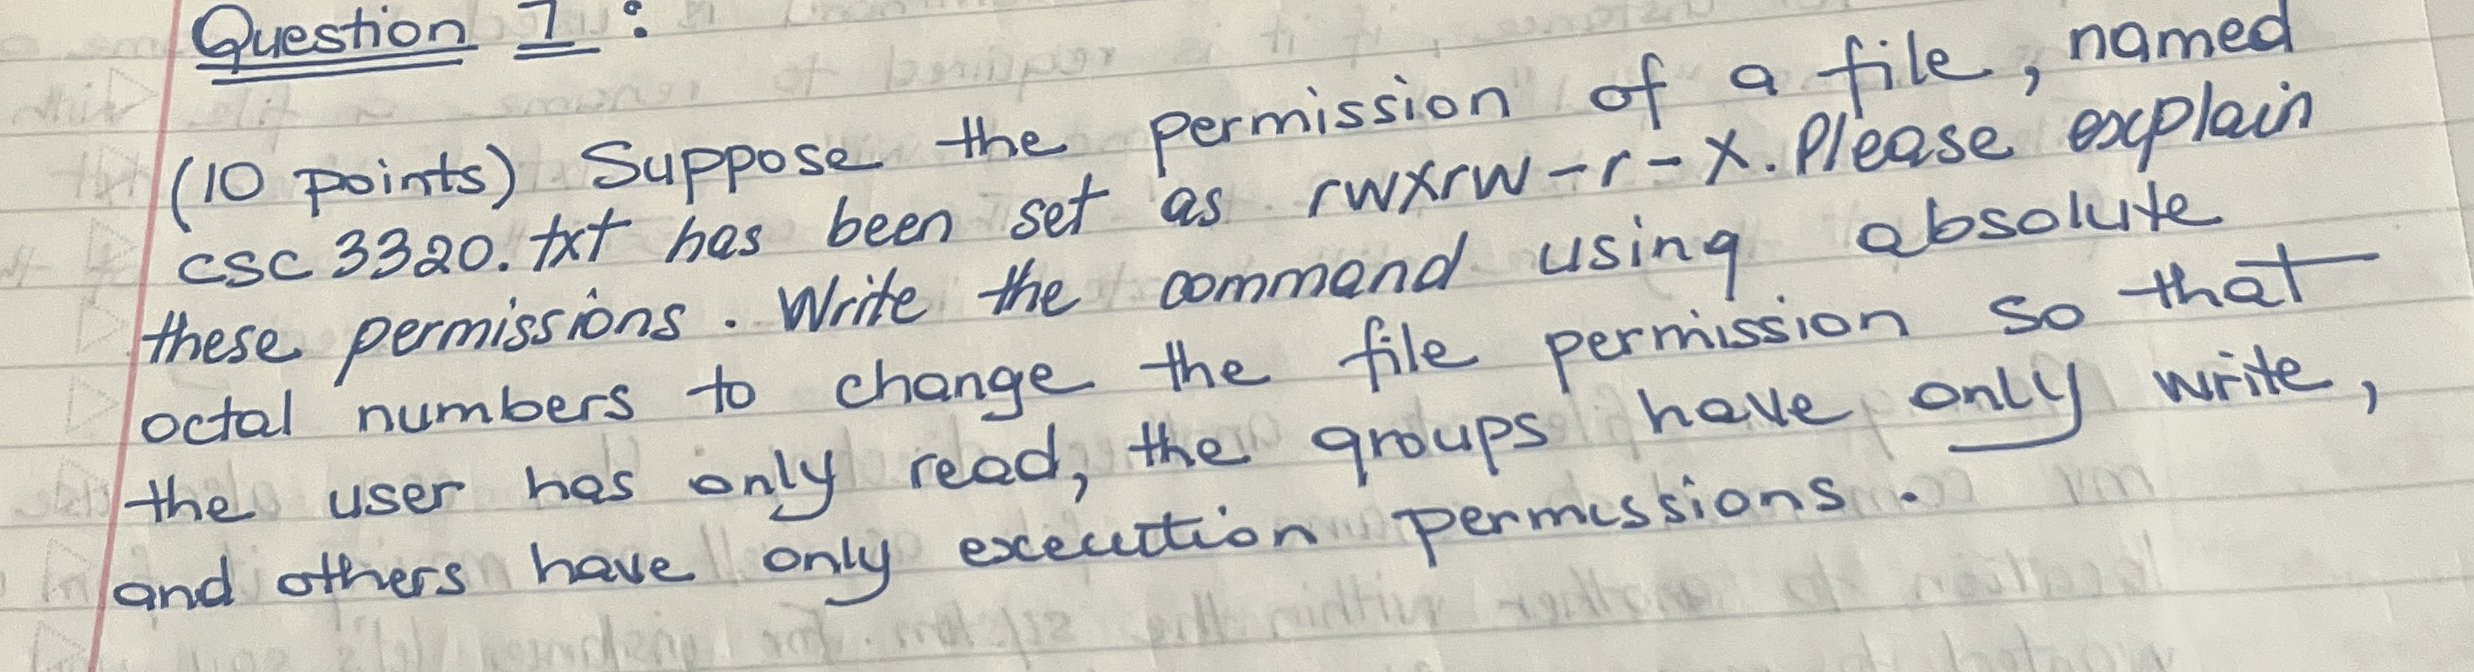 Question 7:
(10 points) Suppose the permission of a file, named
csc3320.txt has been set as rwxrw-r-x. Please explain
these permissions. Write the command using absolute
octal numbers to change the file permission so that
the user has only read, the groups have only write,
and others have only execution permissions.